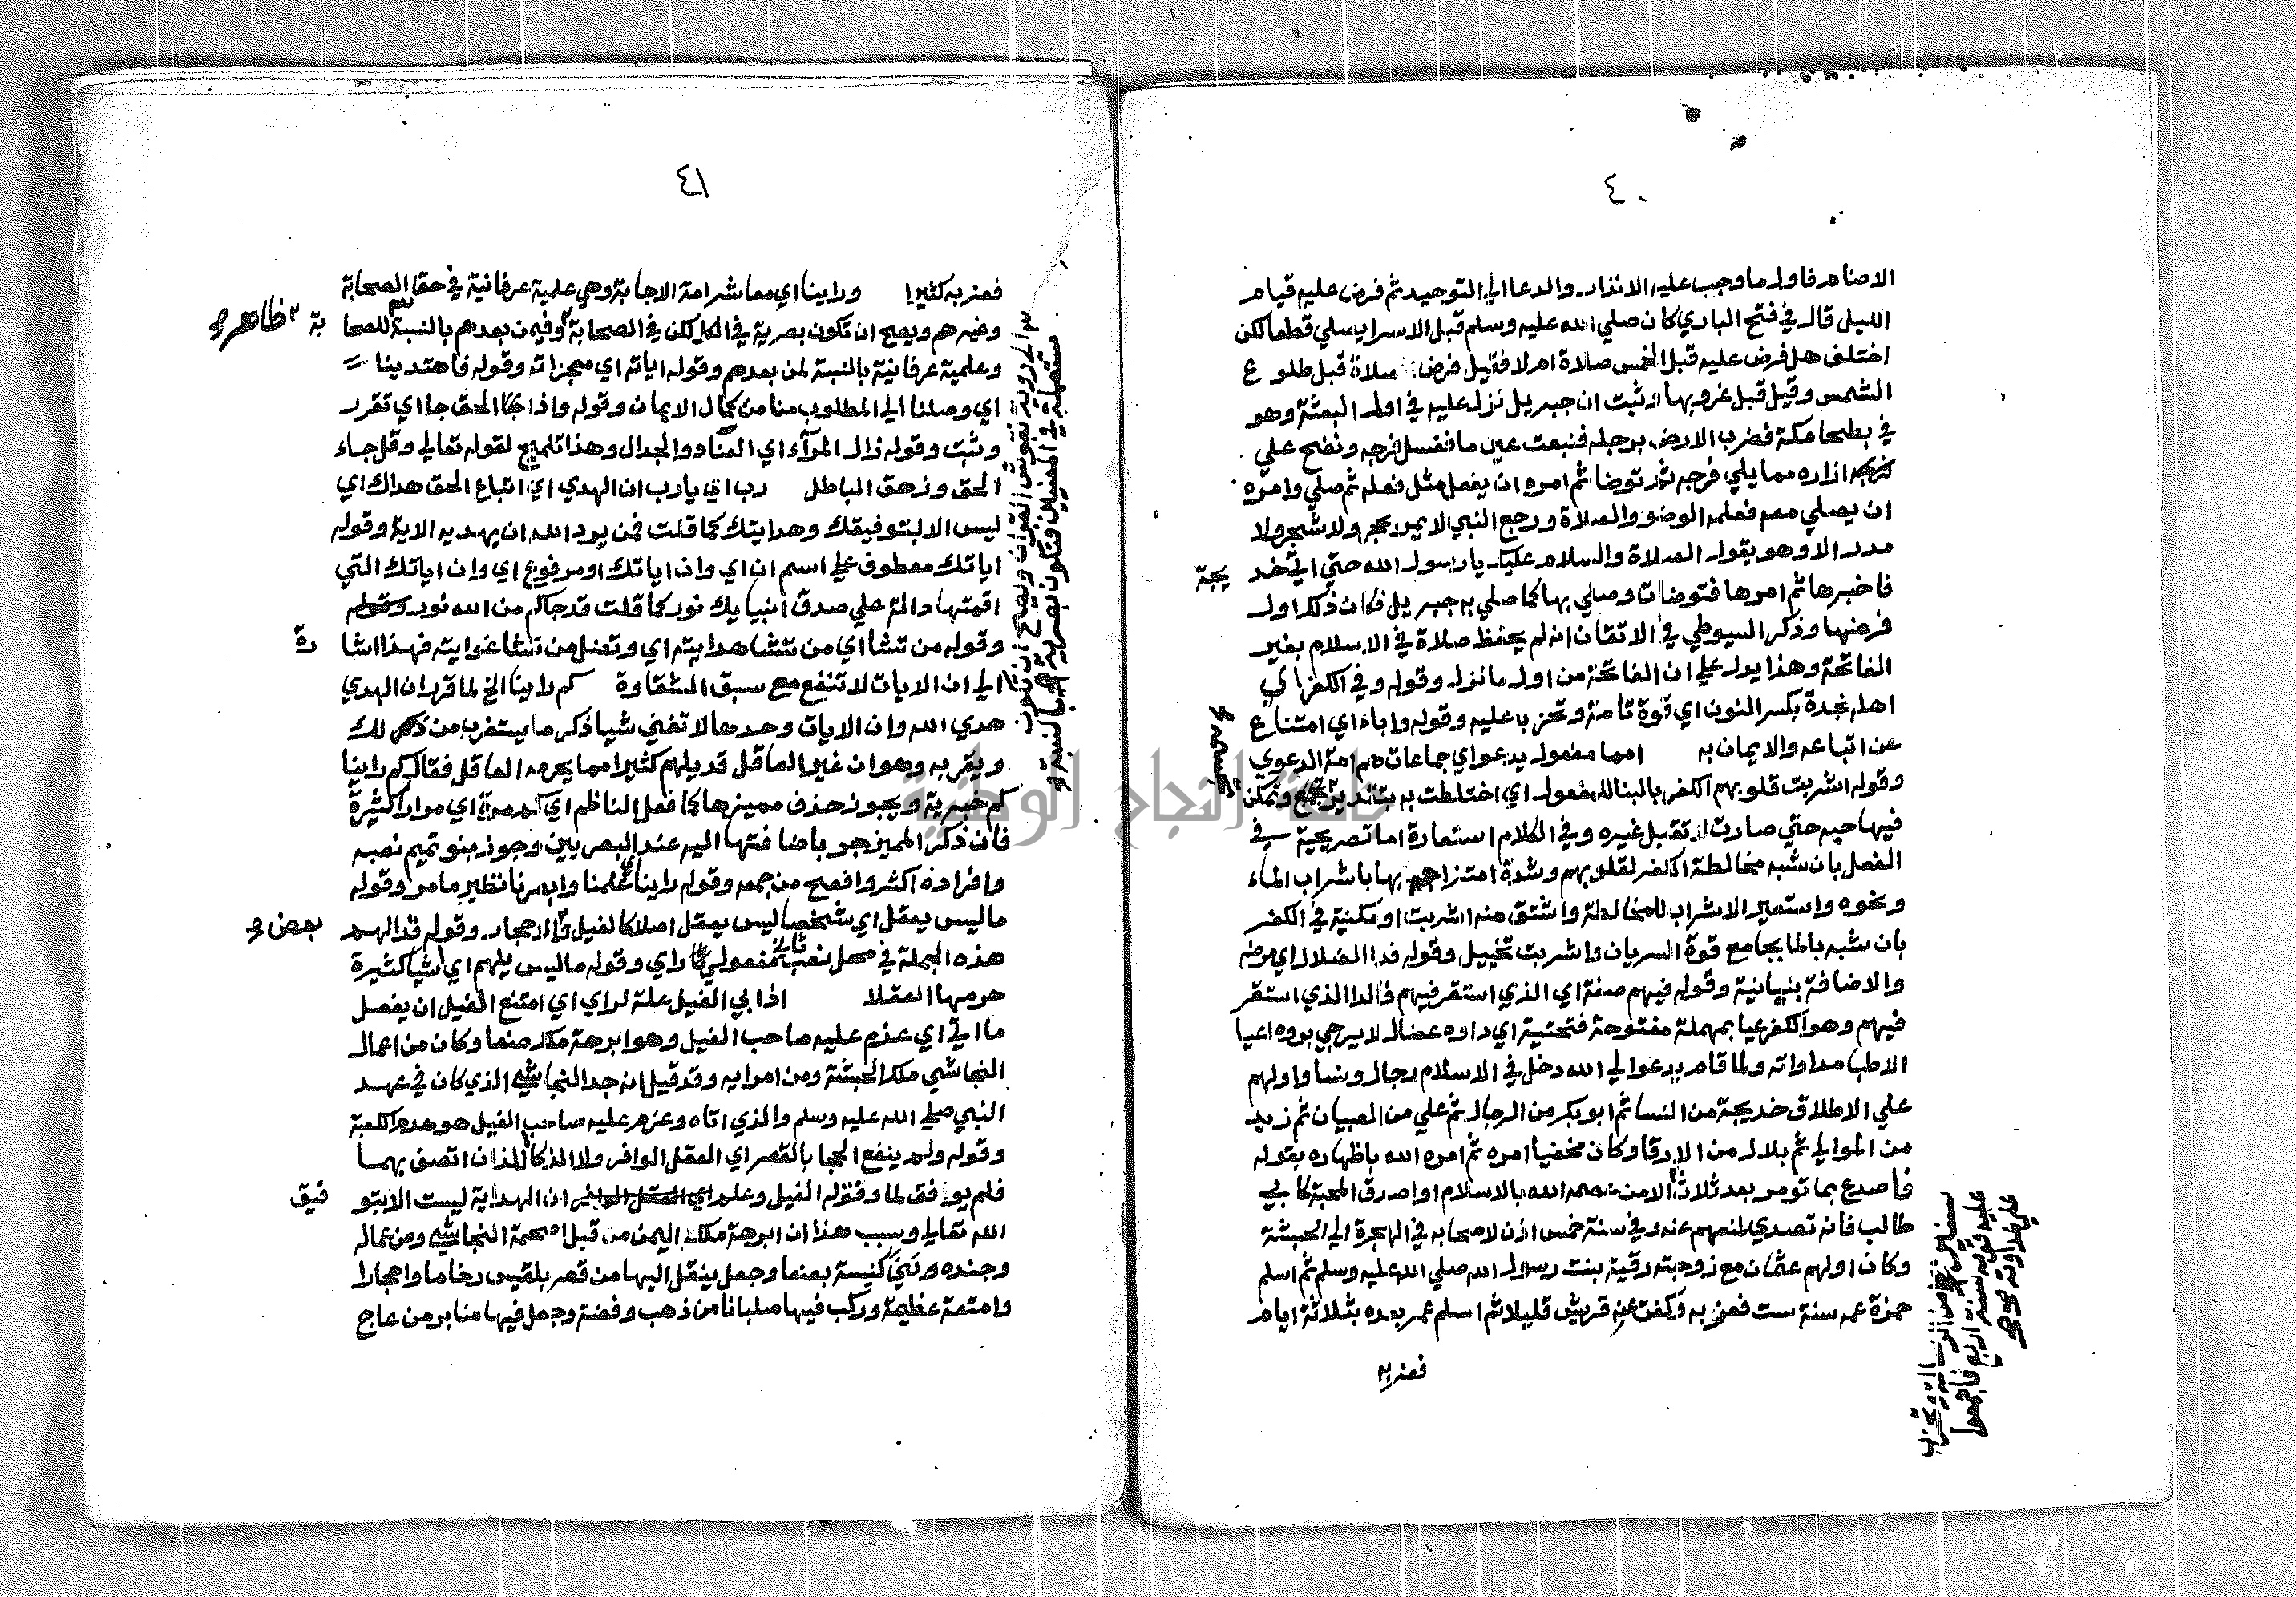 ٤٠
الاصنام فاول ما وجب عليه الانذار والدعا الي التوحيد ثم فرض عليه قيام
الليل قال في فتح الباري كان صلي الله عليه وسلم قبل الاسرا يصلي قطعا لكن
اختلف هل فرض عليه قبل الخمس صلاة ام لا فقيل فرض صلاة قبل طلوع
الشمس وقيل قبل غروبها اذ ثبت ان جبريل نزل عليه في اول البعثة وهو
في بطحا مكة فضرب الارض برجله فنبعت عين ما فغسل فرجه ونضح علي
ازاره مما يلي فرجه ثم توضا ثم امره ان يفعل مثل فعله ثم صلي وامره
ان يصلي معه فعلمه الوضو والصلاة ورجع النبي لا يمر بحجر ولا شجر ولا
مدر الا وهو يقول الصلاة والسلام عليك يا رسول الله حتي اتي خد يجة
فاخبرها ثم امرها فتوضات وصلي بها كما صلي به جبريل فكان ذلك اول
فرضها وذكر السيوطي في الاتقان انه لم يحفظ صلاة في الاسلام بغير
الفاتحة وهذا يدل علي ان الفاتحة من اول ما نزل وقوله وفي الكفر اي
اهله نجدة بكسر النون اي قوة تامة وتحزبا عليه وقوله واباء اي امتناع
عن اتباعه والايمان به امما مفعول يدعو اي جماعات هم امة الدعوي
وقوله اشربت قلوبهم الكفر بالبنا للمفعول اي اختلطت به وتمكن
فيها حبه حتي صارت لا تقبل غيره وفي الكلام استعارة اما تصريحية في
الفعل بان شبه مخالطة الكفر لقلوبهم وشدة امتزاجهم بها باشراب الماء
ونحوه واستعير الاشراب للمخالطة واشتق منه اشربت او مكنية في الكفر
بان شبه بالما بجامع قوة السريان واشربت تخييل وقوله فدا الضلال اي مرضه
والاضافة بيانية وقوله فيهم صفة اي الذي استقر فيهم فالدا الذي استقر
فيهم وهو الكفر عيا بمهملة مفتوحة فتحتية اي داوه عضال لا يرجي بروه اعيا
الاطبا مداواته ولما قام يدعو الي الله دخل في الاسلام رجال ونسا واولهم
علي الاطلاق خديجة من النسا ثم ابو بكر من الرجال ثم علي من الصبيان ثم زيد
من الموالي ثم بلال من الارقا وكان مخفيا امره ثم امره الله باظهاره بقوله
فاصدع بما تومر بعد ثلاث الا من عصمه الله بالاسلام او اصدق المحبة كابي
طالب فانه تصدي لمنعهم عنه وفي سنة خمس اذن لاصحابه في الهجرة الي الحبشة
وكان اولهم عثمان مع زوجته رقية بنت رسول الله صلي الله عليه وسلم ثم اسلم
حمزة عمه سنة ست فعز به وكفت عنه قريش قليلا ثم اسلم عمر بعده بثلاثة ايام
فعز
٤١
فعز به كثيرا وراينا اي معاشر امة الاجابة وهي علمية عرفانية في حق الصحابة
وغيرهم ويصح ان تكون بصرية في الكل لكن في الصحابة وفيمن بعدهم بالنسبة للصحا بة
ظاهر
وعلمية عرفانية بالنسبة لمن بعدهم وقوله اياته اي معجزاته وقوله فاهتدينا
اي وصلنا الي المطلوب منا من كمال الايمان وقوله واذا الحق جا اي تقرر
وثبت وقوله زال المرآء اي العناد والجدال وهذا تلميح لقوله تعالي وقل جاء
الحق وزهق الباطل رب اي يا رب ان الهدي اي اتباع الحق هداك اي
ليس الا بتوفيقك وهدايتك كما قلت فمن يرد الله ان يهديه الاية وقوله
اياتك معطوف علي اسم ان اي وان اياتك او مرفوع اي وان اياتك التي
اقمتها دالة علي صدق انبيايك نور كما قلت قد جاكم من الله نور
وقوله من تشا اي من تشا هدايته اي وتضل من تشا غوايته فهذا اشا رة
الي ان الايات لا تنفع مع سبق الشقاوة كم راينا الخ لما قرر ان الهدي
هدي الله وان الايات وحدها لا تغني شيا ذكر ما يستغرب من ذلك
ويقر به وهو ان غير العاقل قد يلهم كثيرا مما يحرمه العاقل فقال كم راينا
كم خبرية ويجوز حذف مميزها كما فعل الناظم اي كم مرة اي مرارا كثيرة
فان ذكر المميز جر باضافتها اليه عند البصريين وجوز بنو تميم نصبه
وافراده اكثر وافصح من جمعه وقوله راينا اي علمنا وابصرنا نظير ما مر وقوله
ما ليس يعقل اي شخصا ليس يعقل اصلا كالفيل والاحجار وقوله قد الهم
بعض
هذه الجملة في محل نصب ثاني مفعولي راي وقوله ما ليس يلهم اي اشيا كثيرة
حرمها العقلا اذ ابي الفيل علة لراي اي امتنع الفيل ان يفعل
ما اتي اي عزم عليه صاحب الفيل وهو ابرهة ملك صنعا وكان من اعمال
النجاشي ملك الحبشة ومن امرايه وقد قيل انه جد النجاشي الذي كان في عهد
النبي صلي الله عليه وسلم والذي اتاه وعزم عليه صاحب الفيل هو هدم الكعبة
وقوله ولم ينفع الحجا بالقصر اي العقل الوافر ولا الذكا اللذان اتصف بهما
فلم يوافق لما وفق له الفيل وعلم ان الهداية ليست الا بتو فيق
الله تعالي وسبب هذا ان ابرهة ملك اليمن من قبل اصحمة النجاشي ومن عماله
وجنده وبني كنيسة بصنعا وجعل ينقل اليها من قصر بلقيس رخاما واحجارا
وامتعة عظيمة وركب فيها صلبانا من ذهب وفضة وجعل فيها منابر من عاج
جامعة النجاح الوطنية